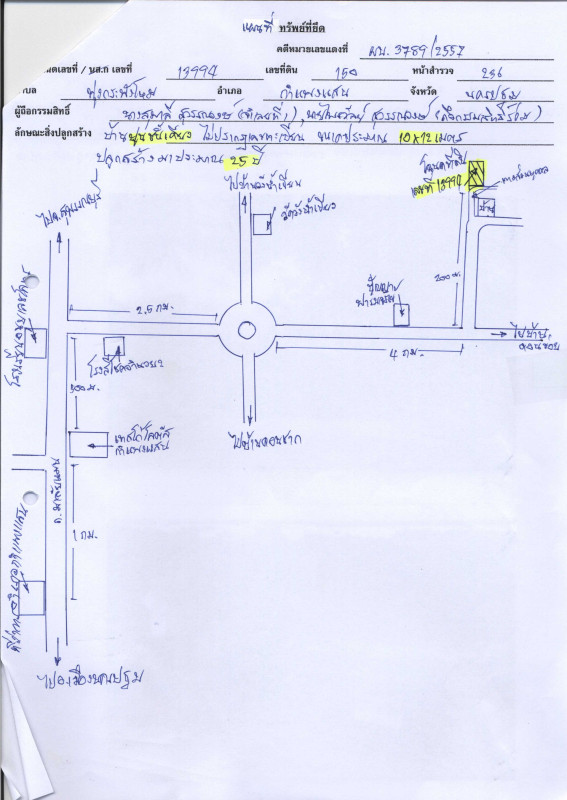 แผนที่ ทรัพย์ที่ยึด
คดีหมายเลขแดงที่ ผบ. 3789/2557
โฉนดเลขที่ / นส.ก เลขที่ 13994 เลขที่ดิน 150 หน้าสำรวจ 236
ตำบล ทุ่งกระพังโหม อำเภอ กำแพงแสน จังหวัด นครปฐม
ผู้ถือกรรมสิทธิ์
ลักษณะสิ่งปลูกสร้าง บ้านปูนชั้นเดียว ไม่ปรากฏเลขทะเบียน ขนาดประมาณ 10x12 เมตร
ปลูกสร้างมาประมาณ 25 ปี
โฉนดที่ดิน
เลขที่ 13994
ไปบ้านวังน้ำเขียว
วัดวังน้ำเขียว
บ้าน
ไปจ.สุพรรณบุรี
200 ม.
2.5 กม.
4 กม.
ไปบ้าน
500 ม.
เทสโก้โลตัส
กำแพงแสน
ไปบ้านดอนซาก
ถ.มาลัยแมน
1 กม.
ที่ว่าการอำเภอกำแพงแสน
ไปอ.เมืองนครปฐม